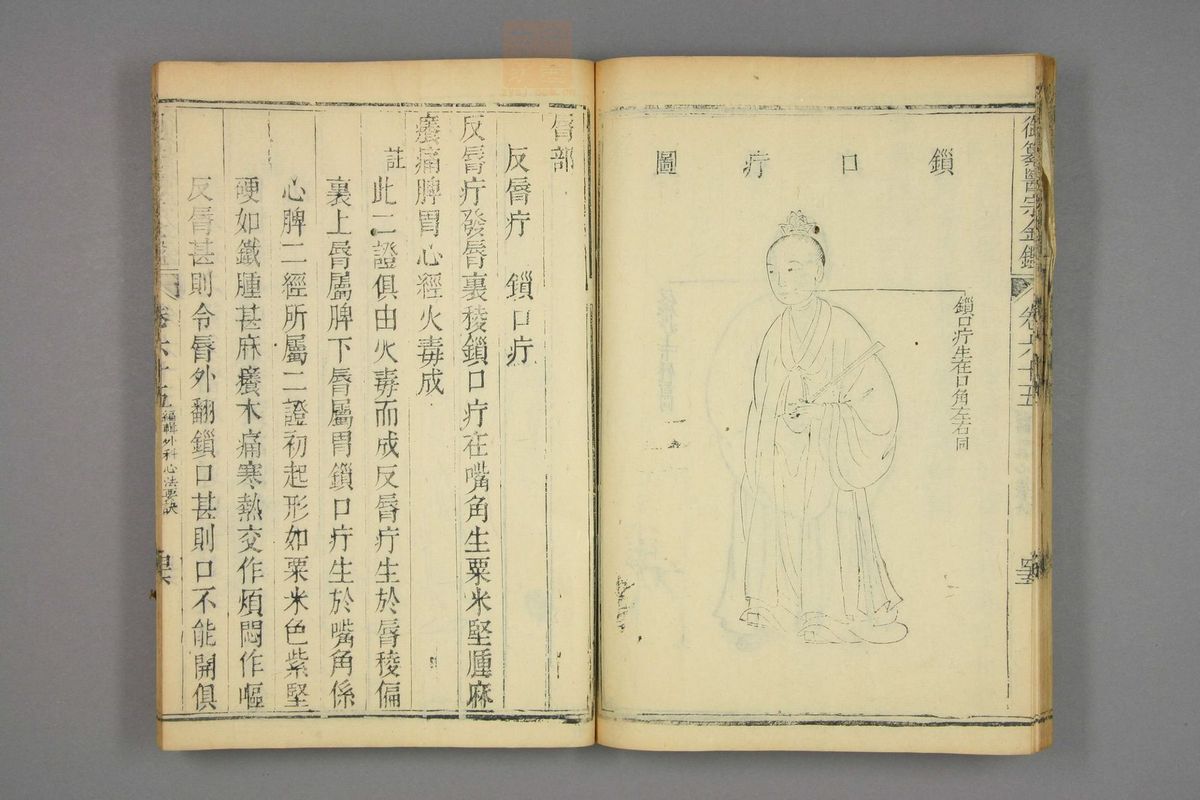 御纂醫宗金鑑 卷六十五
鎖口疔圖
鎖口疔生在口角左右同
脣部
反脣疔 鎖口疔
反脣疔發脣裏稜鎖口疔在嘴角生粟米堅腫麻
癢痛脾胃心經火毒成
註
此二證俱由火毒而成反脣疔生於脣稜偏
裏上脣屬脾下脣屬胃鎖口疔生於嘴角係
心脾二經所屬二證初起形如粟米色紫堅
硬如鐵腫甚麻癢木痛寒熱交作煩悶作嘔
反脣甚則令脣外翻鎖口甚則口不能開俱
卷六十五 編輯外科心法要訣